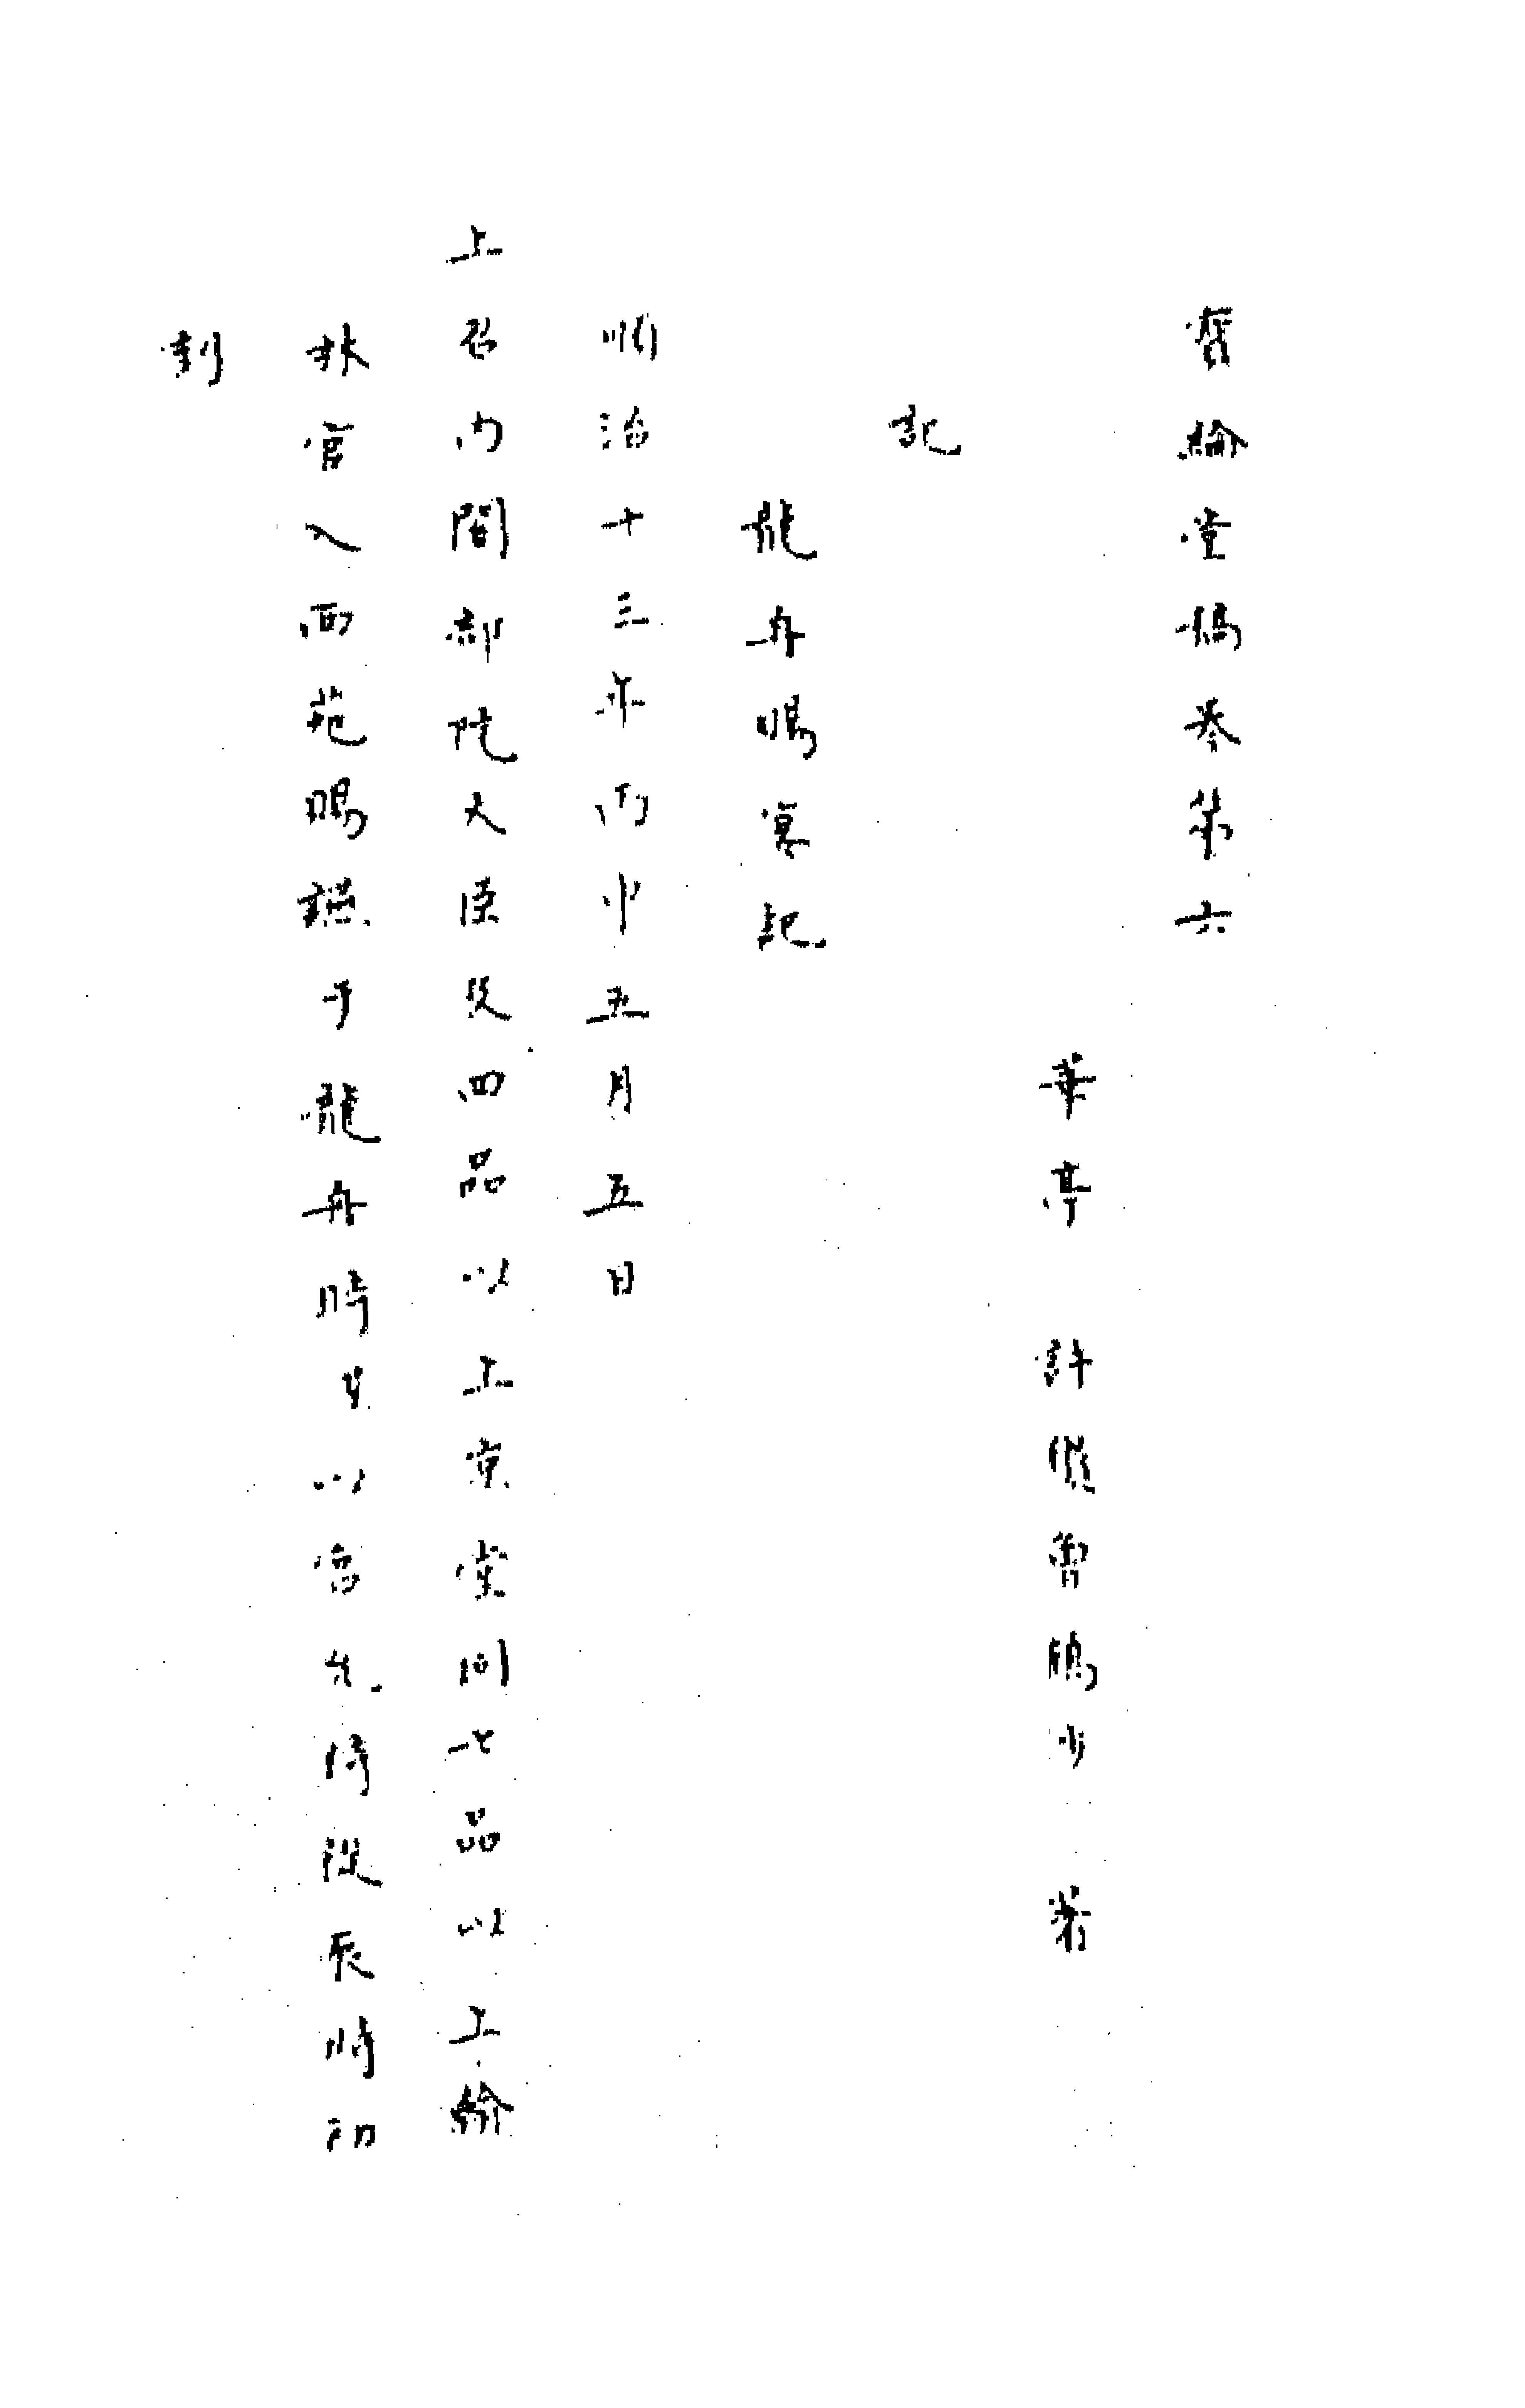 寶綸堂稿卷第六
華亭 許纘曾鶴沙 著
記
龍舟賜宴記
順治十三年丙申五月五日
上召內閣部院大臣及四品以上京堂同七品以上翰
林官入西苑賜讌于龍舟時以宮允侍從辰時初
刻